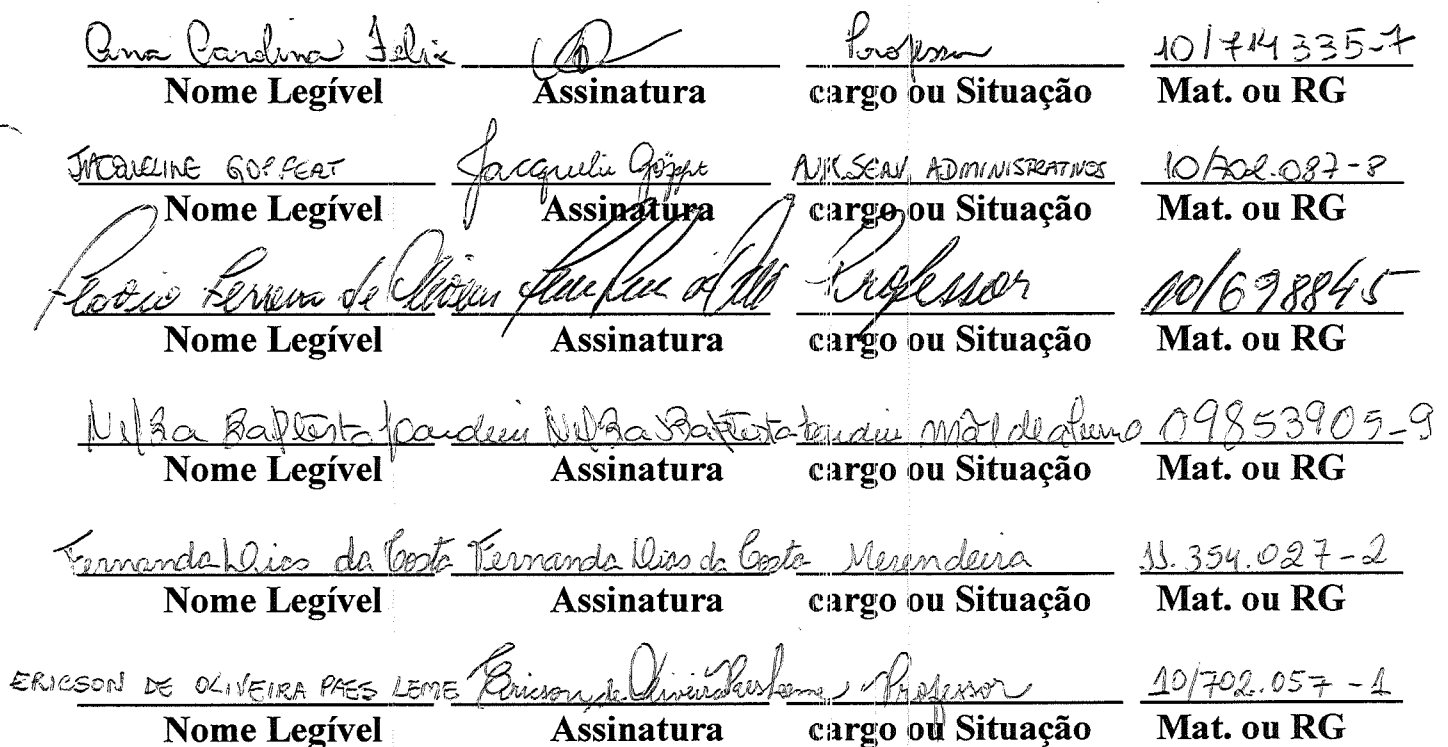 Ana Carolina Felix Professora 10/714335-7
Nome Legível Assinatura cargo ou Situação Mat. ou RG
JACQUELINE GOPFERT Jacqueline Göpfert ADMINISTRATIVOS 10/702.087-8
Nome Legível Assinatura cargo ou Situação Mat. ou RG
Flavio Ferreira de Oliveira Professor 10/698845
Nome Legível Assinatura cargo ou Situação Mat. ou RG
Baptista Jardim Baptista Jardim mãe de aluno 09853905-9
Nome Legível Assinatura cargo ou Situação Mat. ou RG
Fernanda Dias da Costa Fernanda Dias da Costa Merendeira 11.354.027-2
Nome Legível Assinatura cargo ou Situação Mat. ou RG
ERICSON DE OLIVEIRA PAES LEME Ericson de Oliveira Paes Leme Professor 10/702.057-1
Nome Legível Assinatura cargo ou Situação Mat. ou RG